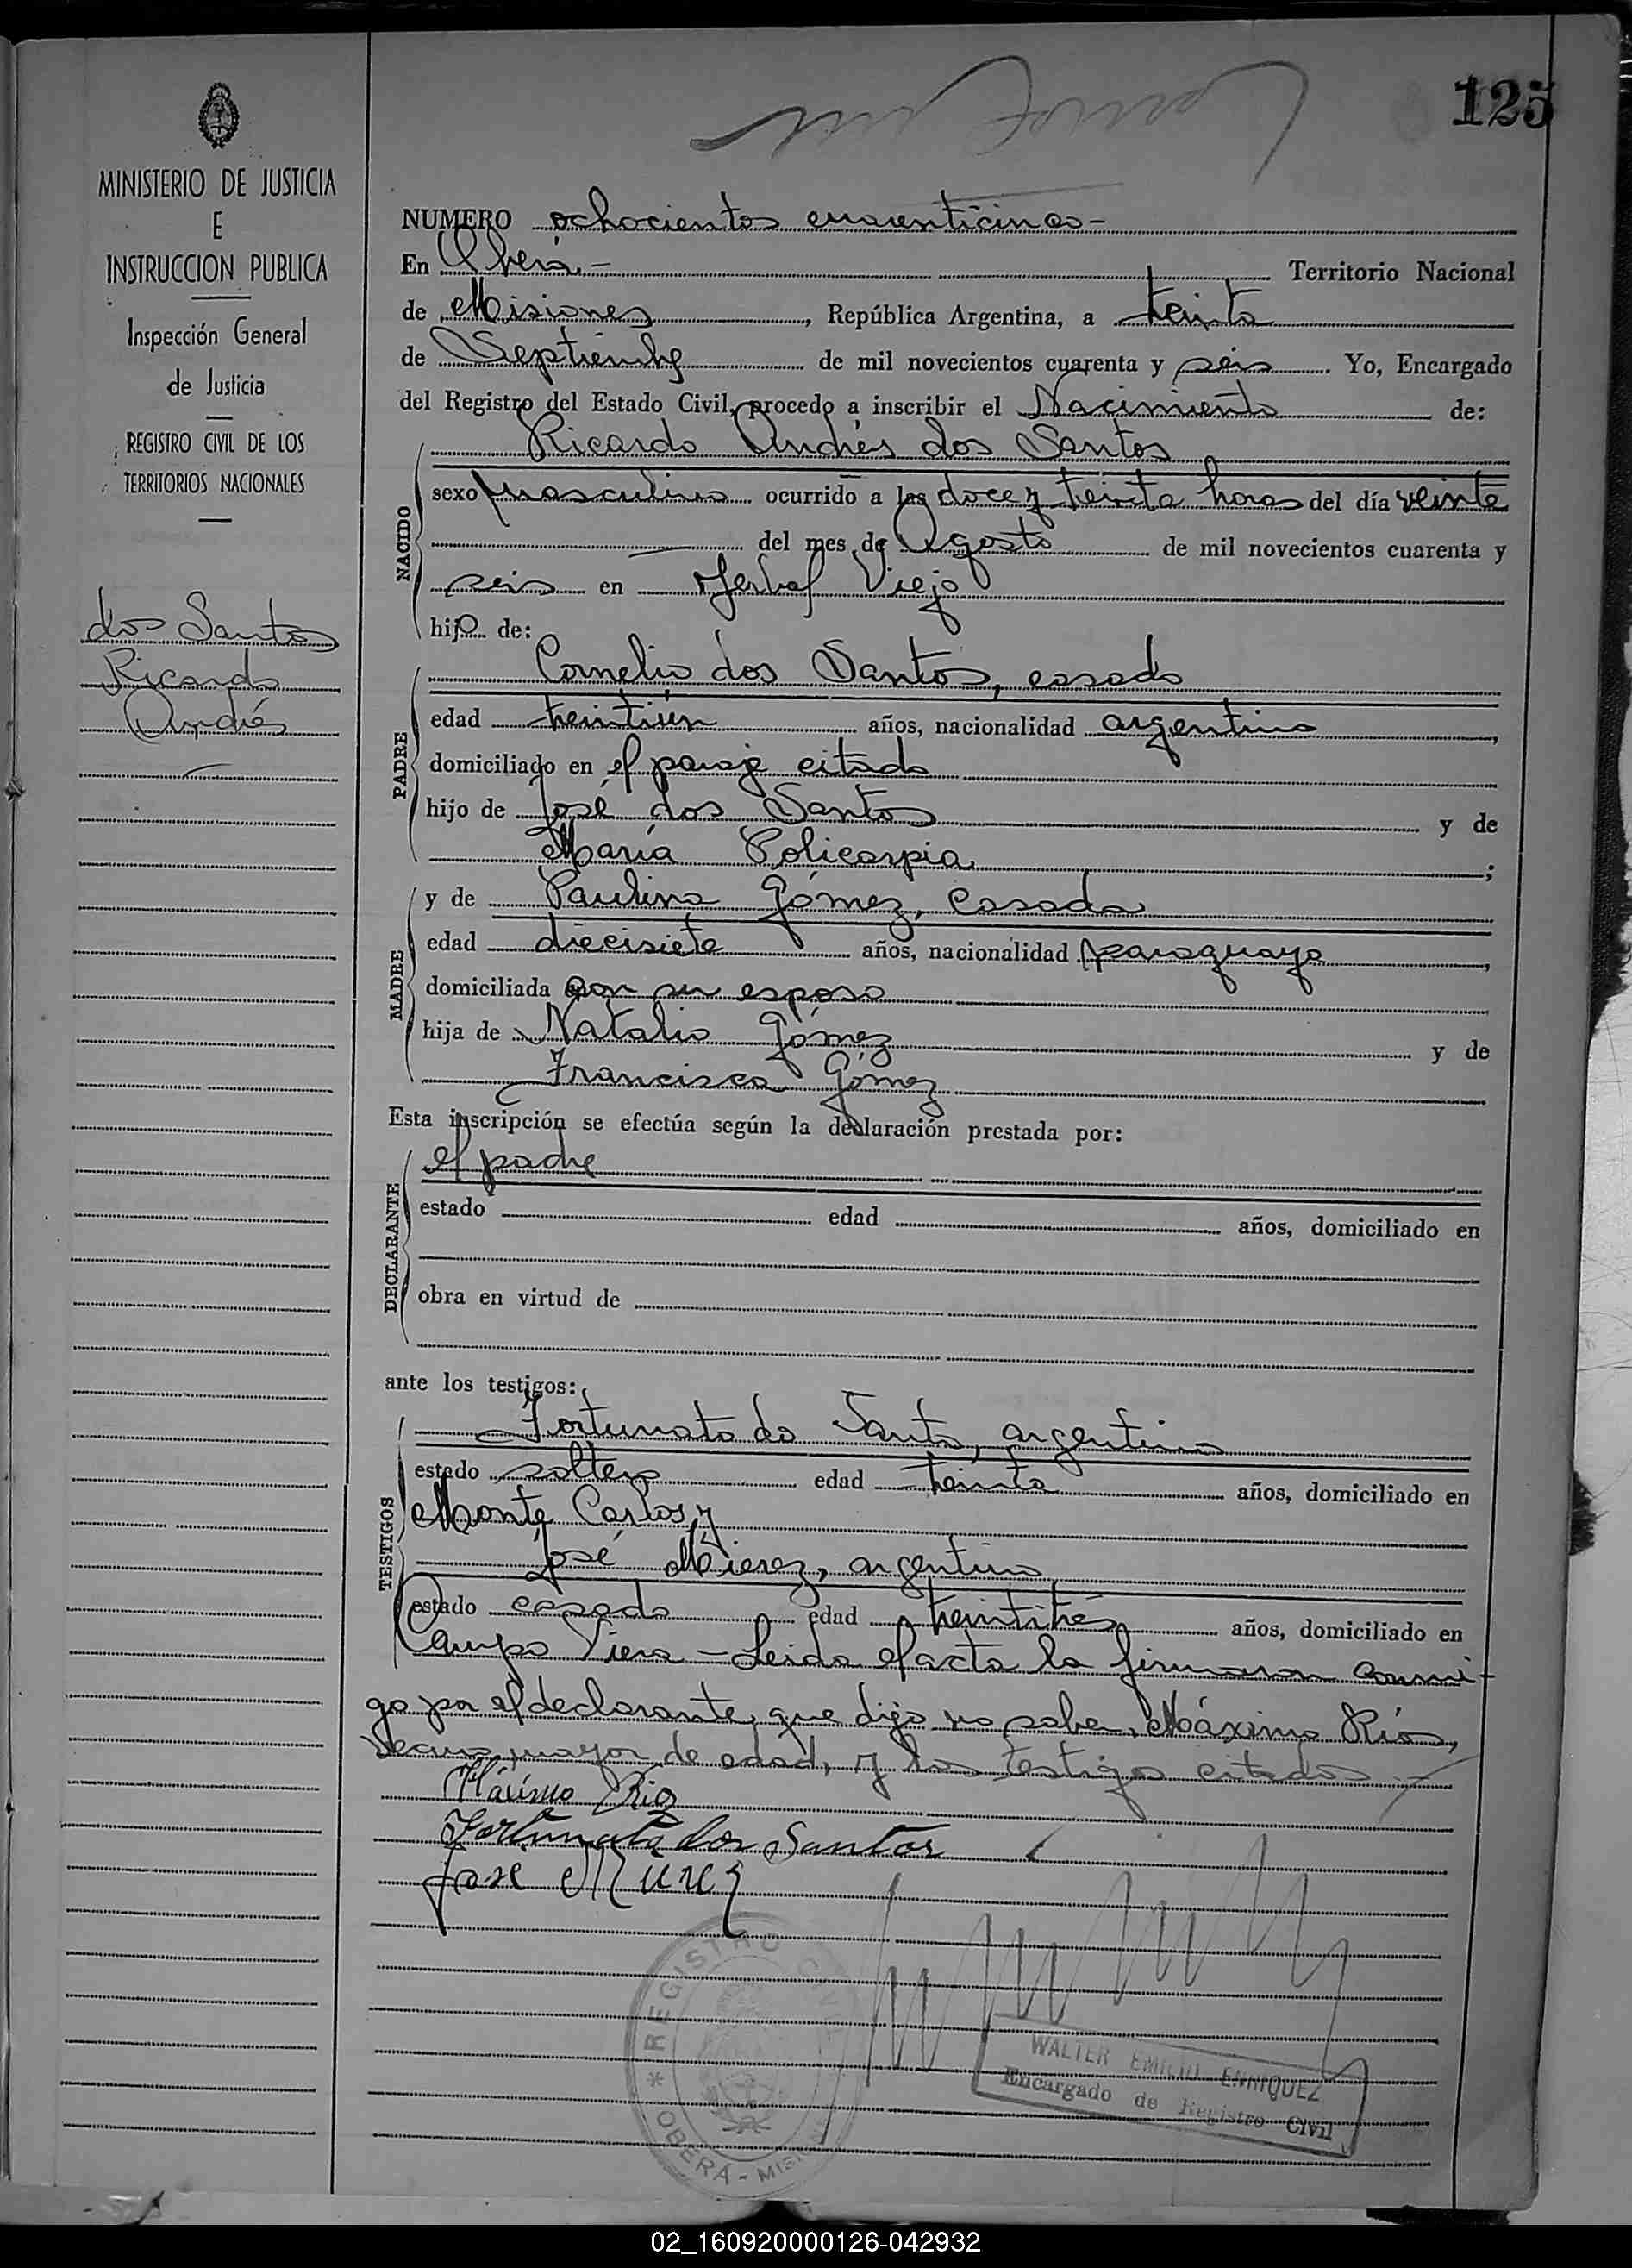 125
MINISTERIO DE JUSTICIA
E
INSTRUCCION PUBLICA
Inspección General
de Justicia
REGISTRO CIVIL DE LOS
TERRITORIOS NACIONALES
dos Santos
Ricardo
Andrés
NUMERO ochocientos cuarenticinco-
En Oberá.- Territorio Nacional
de Misiones, República Argentina, a treinta
de Septiembre de mil novecientos cuarenta y seis. Yo, Encargado
del Registro del Estado Civil, procedo a inscribir el Nacimiento de:
NACIDO
Ricardo Andrés dos Santos
sexo masculino ocurrido a las doce y treinta horas del día veinte
del mes de Agosto de mil novecientos cuarenta y
seis en Yerbal Viejo
hijo de:
PADRE
Cornelio dos Santos, casado
edad treintiún años, nacionalidad argentino,
domiciliado en el paraje citado
hijo de José dos Santos y de
María Policarpia;
MADRE
y de Paulina Gómez, casada
edad diecisiete años, nacionalidad paraguaya,
domiciliada con su esposo
hija de Natalio Gómez y de
Francisca Gómez
Esta inscripción se efectúa según la declaración prestada por:
DECLARANTE
el padre
estado edad años, domiciliado en
obra en virtud de
ante los testigos:
TESTIGOS
Fortunato do Santo, argentino
estado soltero edad treinta años, domiciliado en
Monte Carlos, y
José Mierez, argentino
estado casado edad treintitrés años, domiciliado en
Campo Viera - Leida el acta la firmaron conmi-
go por el declarante, que dijo no saber, Máximo Ríos,
vecino, mayor de edad, y los testigos citados.-
Máximo Rios
Fortunato dos Santos
José Mierez
* REGISTRO CIVIL
OBERÁ - MISIONES
WALTER EMILIO ENRIQUEZ
Encargado de Registro Civil
02_160920000126-042932